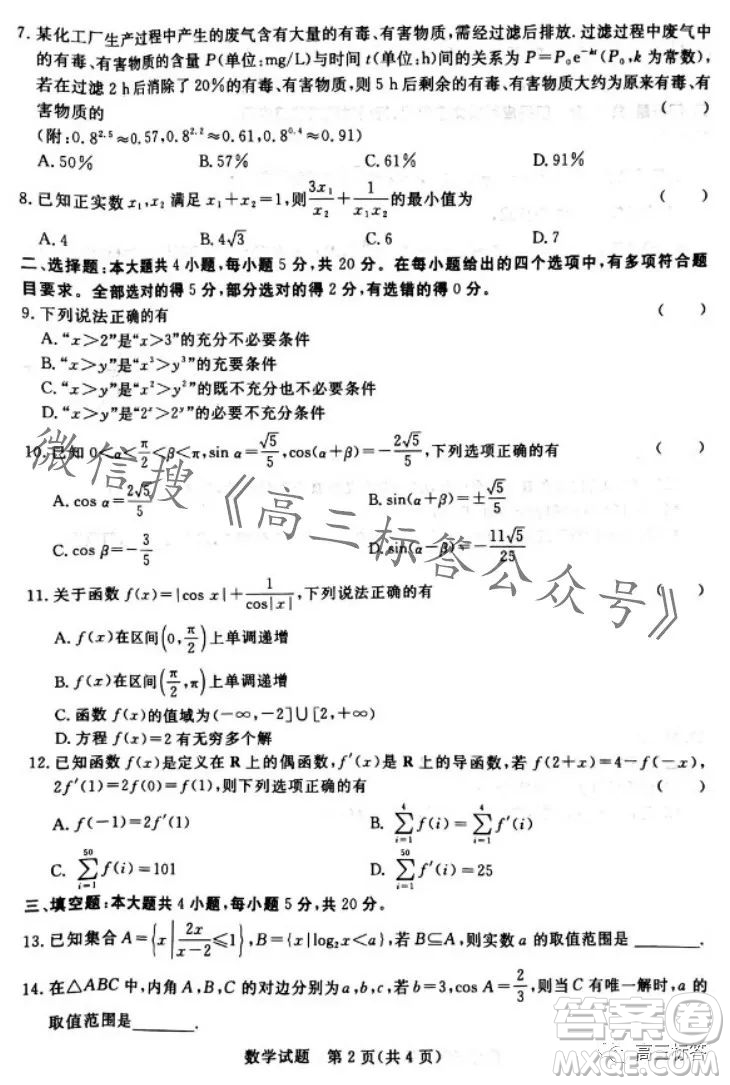 7. 某化工厂生产过程中产生的废气含有大量的有毒、有害物质,需经过滤后排放. 过滤过程中废气中
的有毒、有害物质的含量 P(单位:mg/L)与时间 t(单位:h)间的关系为 P=P₀e^{-kt}(P₀,k 为常数),
若在过滤 2 h 后消除了 20%的有毒、有害物质,则 5 h 后剩余的有毒、有害物质大约为原来有毒、有
害物质的 ( )
(附:0.8^{2.5}≈0.57,0.8^{2.2}≈0.61,0.8^{0.4}≈0.91)
A. 50% B. 57% C. 61% D. 91%
8. 已知正实数 x₁,x₂ 满足 x₁+x₂=1,则 3x₁/x₂ + 1/(x₁x₂) 的最小值为 ( )
A. 4 B. 4√3 C. 6 D. 7
二、选择题:本大题共 4 小题,每小题 5 分,共 20 分。在每小题给出的四个选项中,有多项符合题
目要求。全部选对的得 5 分,部分选对的得 2 分,有选错的得 0 分。
9. 下列说法正确的有 ( )
A. “x>2”是“x>3”的充分不必要条件
B. “x>y”是“x³>y³”的充要条件
C. “x>y”是“x²>y²”的既不充分也不必要条件
D. “x>y”是“2ˣ>2ʸ”的必要不充分条件
10. 已知 0<α<π/2<β<π,sin α=√5/5,cos(α+β)=-2√5/5,下列选项正确的有 ( )
A. cos α=2√5/5 B. sin(α+β)=±√5/5
C. cos β=-3/5 D. sin(α-β)=-11√5/25
11. 关于函数 f(x)=|cos x|+1/cos|x|,下列说法正确的有 ( )
A. f(x)在区间(0,π/2)上单调递增
B. f(x)在区间(π/2,π)上单调递增
C. 函数 f(x)的值域为(-∞,-2]∪[2,+∞)
D. 方程 f(x)=2 有无穷多个解
12. 已知函数 f(x)是定义在 R 上的偶函数,f′(x)是 R 上的导函数,若 f(2+x)=4-f(-x),
2f′(1)=2f(0)=f(1),则下列选项正确的有 ( )
A. f(-1)=2f′(1) B. ∑_{i=1}^{4} f(i)=∑_{i=1}^{4} f′(i)
C. ∑_{i=1}^{50} f(i)=101 D. ∑_{i=1}^{50} f′(i)=25
三、填空题:本大题共 4 小题,每小题 5 分,共 20 分。
13. 已知集合 A={x|2x/(x-2)≤1},B={x|log₂x<a},若 B⊆A,则实数 a 的取值范围是________.
14. 在△ABC 中,内角 A,B,C 的对边分别为 a,b,c,若 b=3,cos A=2/3,则当 C 有唯一解时,a 的
取值范围是________.
数学试题 第 2 页(共 4 页)
微信搜《高三标答公众号》
高三标答
答案圈
MXQE.COM